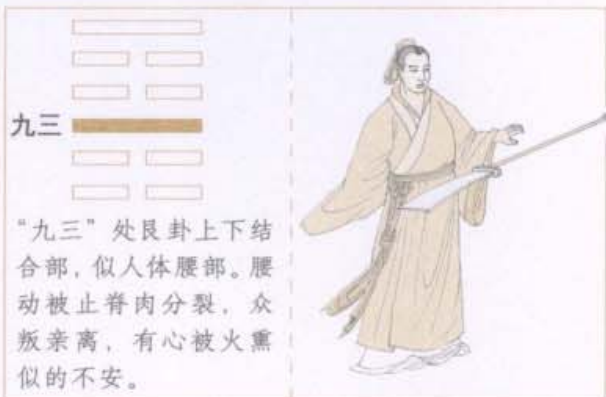 九三
“九三”处艮卦上下结
合部，似人体腰部。腰
动被止脊肉分裂，众
叛亲离，有心被火熏
似的不安。